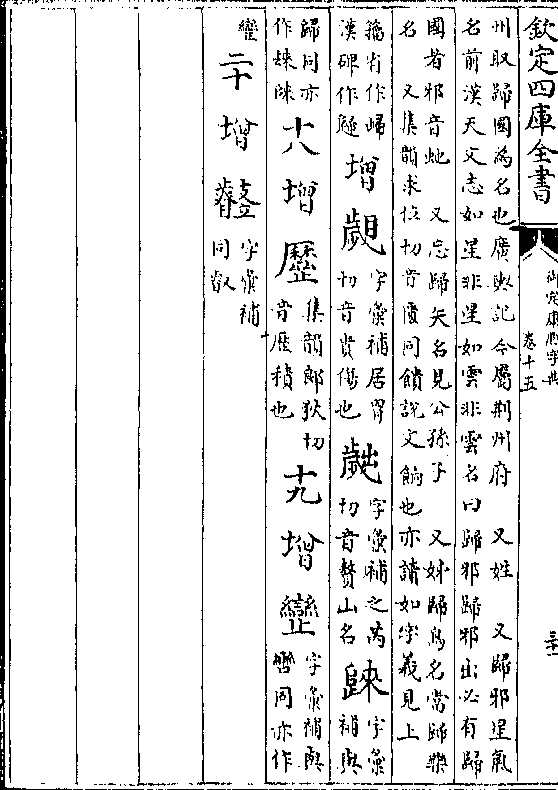 欽定四庫全書
御定康熙字典
卷十五
三十二
州取歸國為名也廣輿記今屬荆州府　又姓　又歸邪星氣
名前漢天文志如星非星如雲非雲名曰歸邪歸邪出必有歸
國者邪音蛇　又忘歸矢名見公孫子　又姊歸鳥名當歸藥
名　又集韻求位切音匱同饋說文餉也亦讀如字義見上
籀省作㱕
漢碑作䢜
增
字彙補居胃
切音貴傷也
字彙補之芮
切音贅山名
字彙
補與
歸同亦
作
十八
增
歷
集韻郎狄切
音歷積也
十九
增
字彙補與
巒同亦作
二十
增
字彙補
同